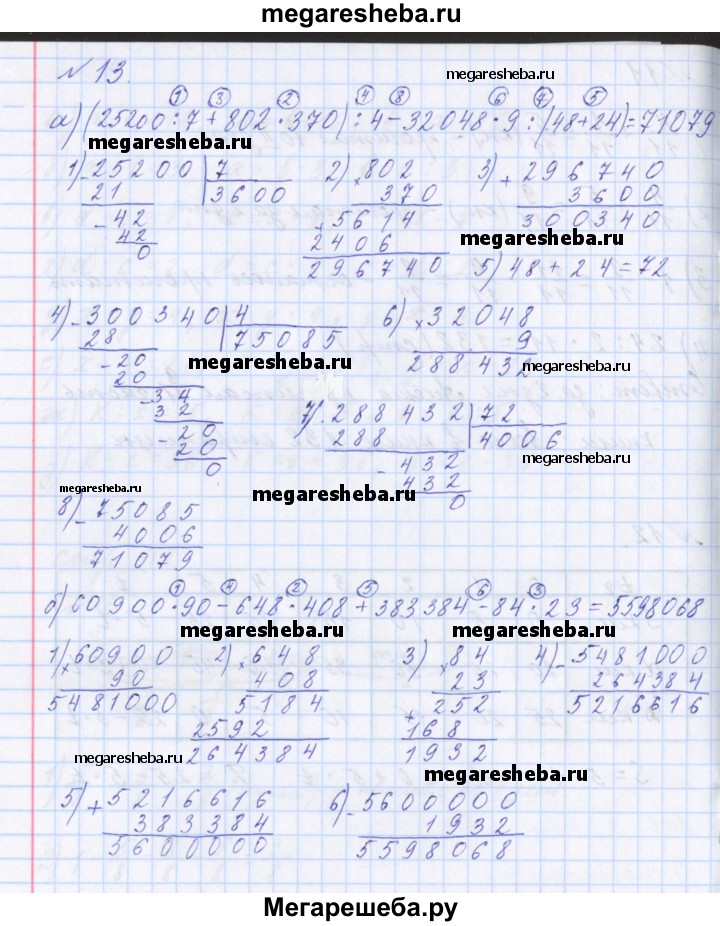 megaresheba.ru
№ 13.
megaresheba.ru
① ③ ② ④ ⑧ ⑥ ⑦ ⑤
а) (25200 : 7 + 802 · 370) : 4 − 32048 · 9 : (48+24) = 71079
megaresheba.ru
1) − 25200 | 7 2) × 802 3) + 296740
21 3600 370 3600
− 42 + 5614 300340
42 2406 megaresheba.ru
0 296740 5) 48 + 24 = 72
4) − 300340 | 4 6) × 32048
28 75085 9
− 20 megaresheba.ru 288432
20
− 34
32 7) − 288432 | 72
− 20 288 4006
20 − 432 megaresheba.ru
0 432
megaresheba.ru megaresheba.ru 0
8) − 75085
4006
71079
① ④ ② ⑤ ⑥ ③
б) 60900 · 90 − 648 · 408 + 383384 − 84 · 23 = 5598068
megaresheba.ru megaresheba.ru
1) × 60900 2) × 648 3) × 84 4) − 5481000
90 408 23 264384
5481000 5184 252 5216616
2592 + 168
264384 1932
megaresheba.ru megaresheba.ru
5) + 5216616 6) − 5600000
383384 1932
5600000 5598068
Мегарешеба.ру